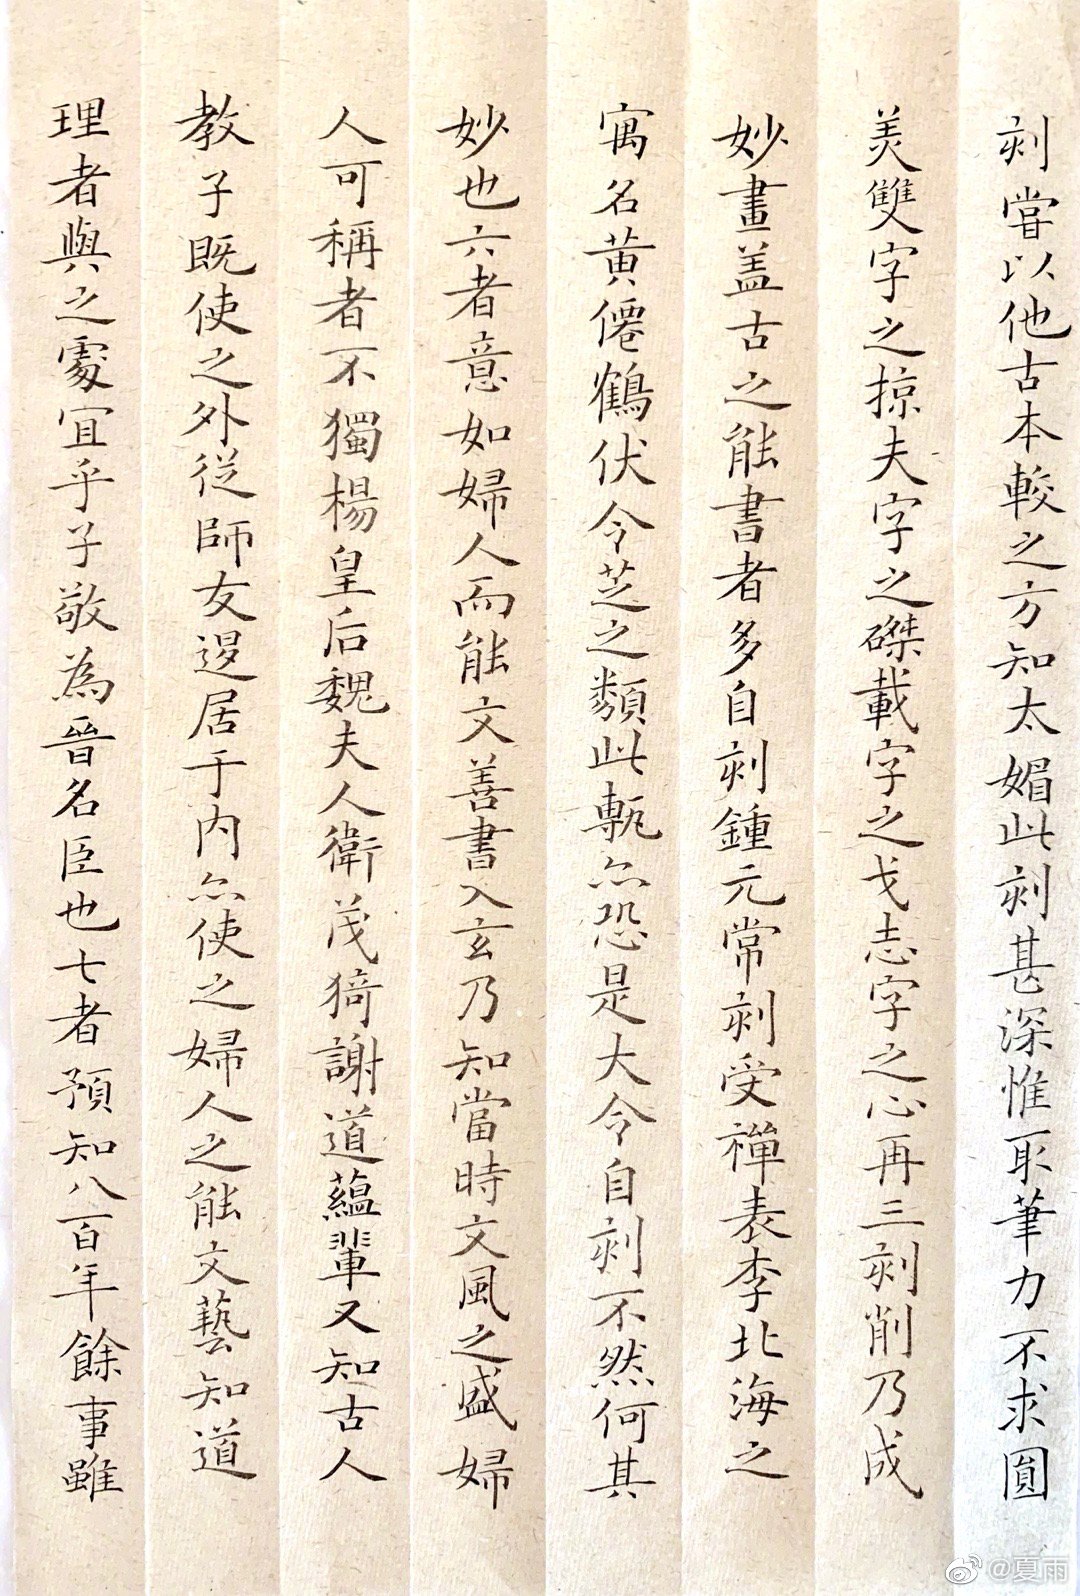 刻嘗以他古本較之方知太媚此刻甚深惟取筆力不求圓
美雙字之掠夫字之磔載字之戈志字之心再三刻削乃成
妙畫盖古之能書者多自刻鍾元常刻受禪表李北海之
寓名黄僊鶴伏令芝之類此甎亦恐是大令自刻不然何其
妙也六者意如婦人而能文善書入玄乃知當時文風之盛婦
人可稱者不獨楊皇后魏夫人衛茂猗謝道蘊輩又知古人
教子既使之外從師友逻居于内亦使之婦人之能文藝知道
理者與之處宜乎子敬為晉名臣也七者預知八百年餘事雖
@夏雨